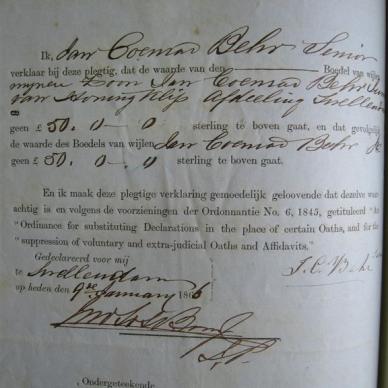 Ik, Jan Coenrad Behr Senior
verklaar bij deze plegtig, dat de waarde van den Boedel van wijlen
mynen Zoon Jan Coenrad Behr Junr
van Honing Klip Afdeeling Swellendam
geen £ 50. 0 - 0 sterling te boven gaat, en dat gevolgelijk
de waarde des Boedels van wijlen Jan Coenrad Behr Jr
geen £ 50. 0 - 0 sterling te boven gaat.
En ik maak deze plegtige verklaring gemoedelijk geloovende dat dezelve waar-
achtig is en volgens de voorzieningen der Ordonnantie No. 6, 1845, getituleerd "An
"Ordinance for substituting Declarations in the place of certain Oaths, and for the
"suppression of voluntary and extra-judicial Oaths and Affidavits."
Gedeclareerd voor mij
te Swellendam
J. C. Behr
op heden den 9de January 1866
J.P.
, Ondergeteekende